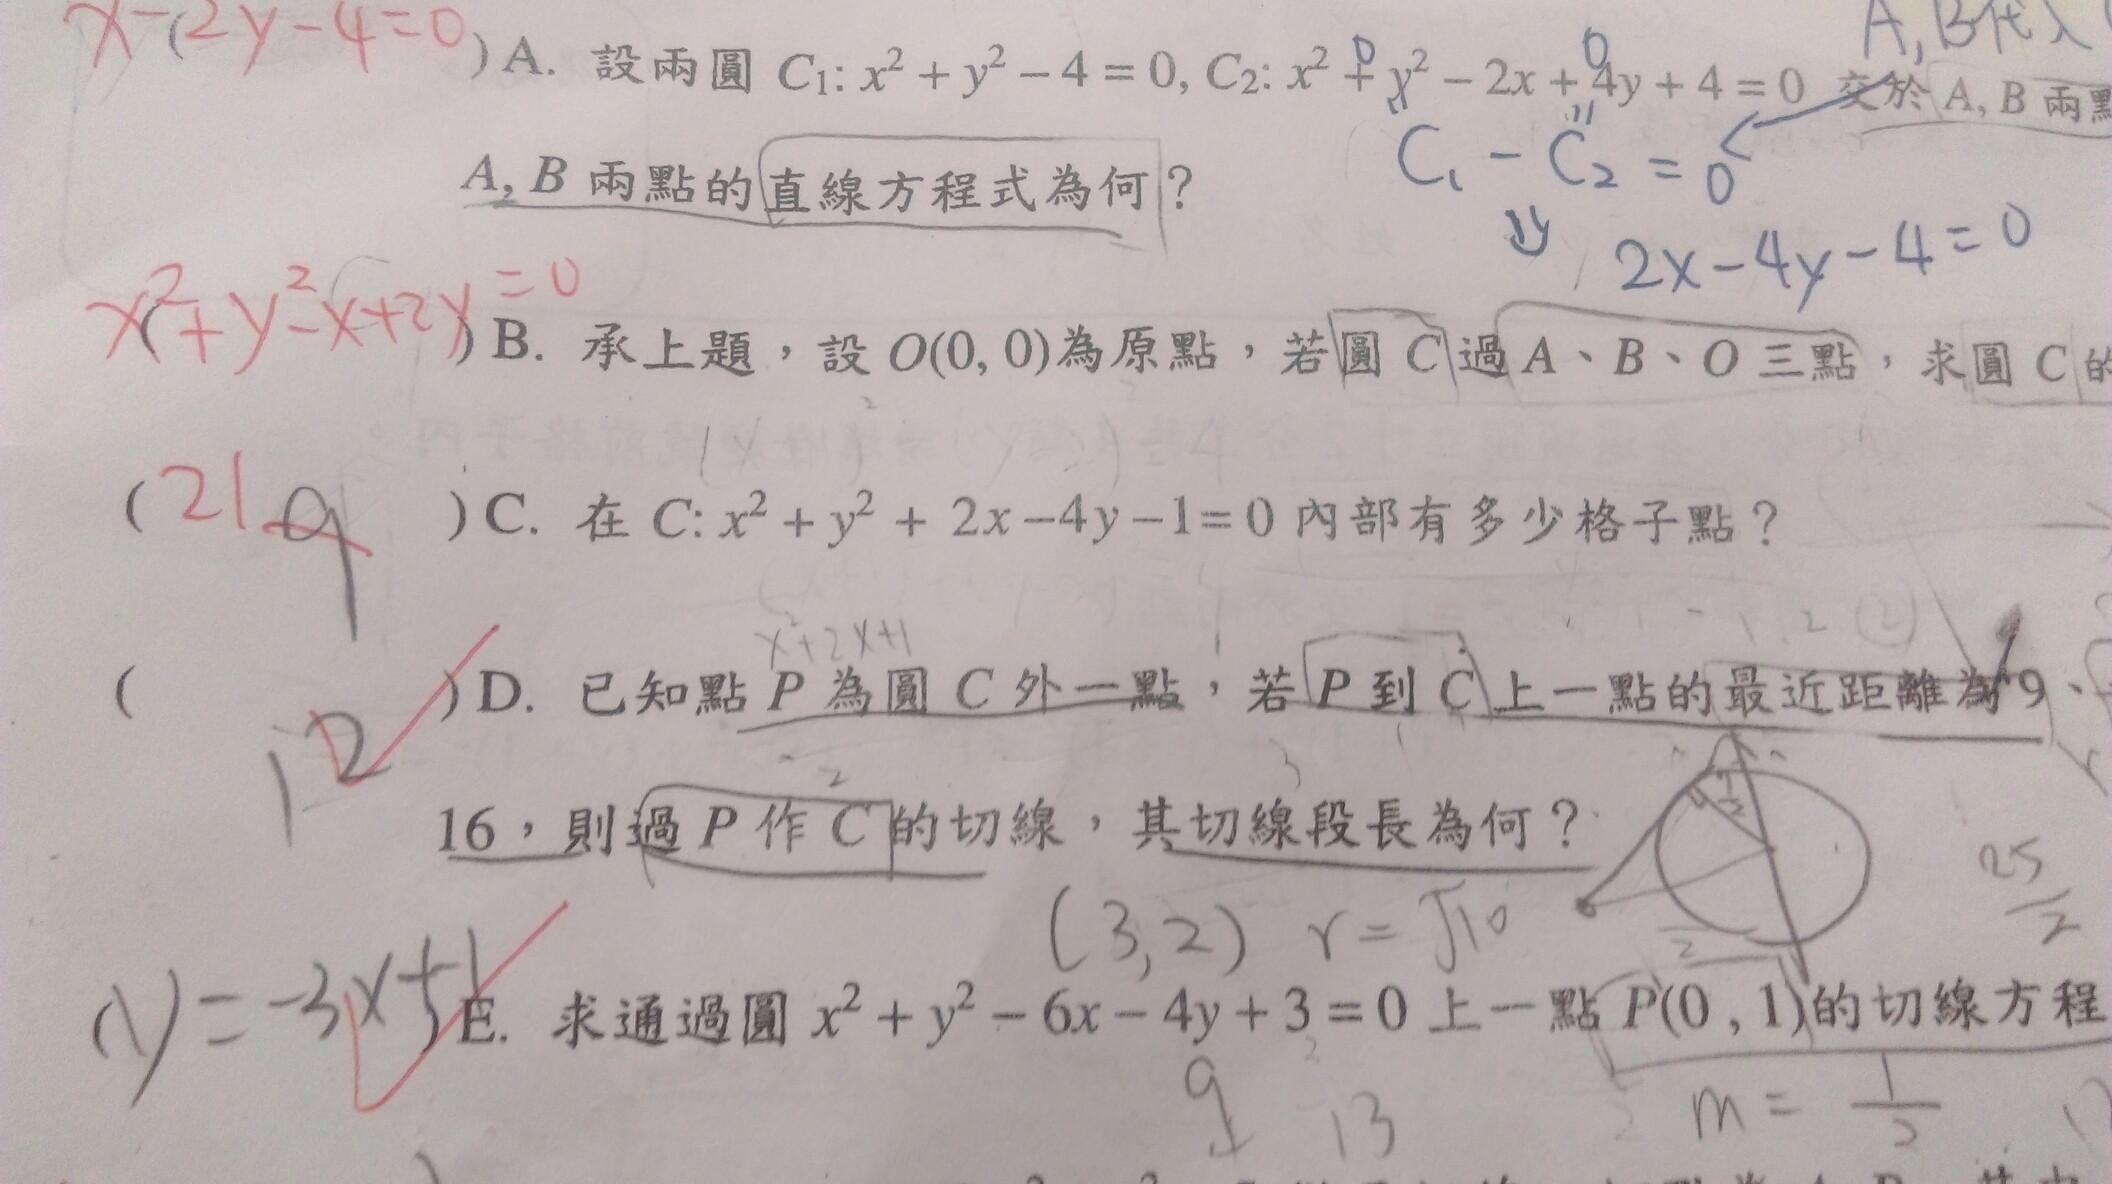 x-2y-4=0
A,B代入
( ) A. 設兩圓 C₁: x² + y² − 4 = 0, C₂: x² + y² − 2x + 4y + 4 = 0 交於 A, B 兩點
C₁ - C₂ = 0
A, B 兩點的直線方程式為何？
⇓ 2x-4y-4=0
x²+y²-x+2y=0
( ) B. 承上題，設 O(0, 0)為原點，若圓 C 過 A、B、O 三點，求圓 C 的
( 21 9 ) C. 在 C: x² + y² + 2x −4y −1= 0 內部有多少格子點？
x²+2x+1
( 12 ) D. 已知點 P 為圓 C 外一點，若 P 到 C 上一點的最近距離為 9、
16，則過 P 作 C 的切線，其切線段長為何？
25/2
(3,2) r=√10
( y=-3x+1 ) E. 求通過圓 x² + y² − 6x − 4y + 3 = 0 上一點 P(0 , 1)的切線方程
9 13 m = 1/2